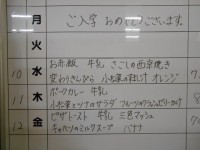 月 ご入学 おめでとうございます。
火
水 お赤飯 牛乳 さごしの西京焼き
10 変わりきんぴら 小松菜のおひたし オレンジ
木 ポークカレー 牛乳
11 小松菜とツナのサラダ フルーツの
金 ピザトースト 牛乳 三色マッシュ
12 キャベツのミルクスープ バナナ